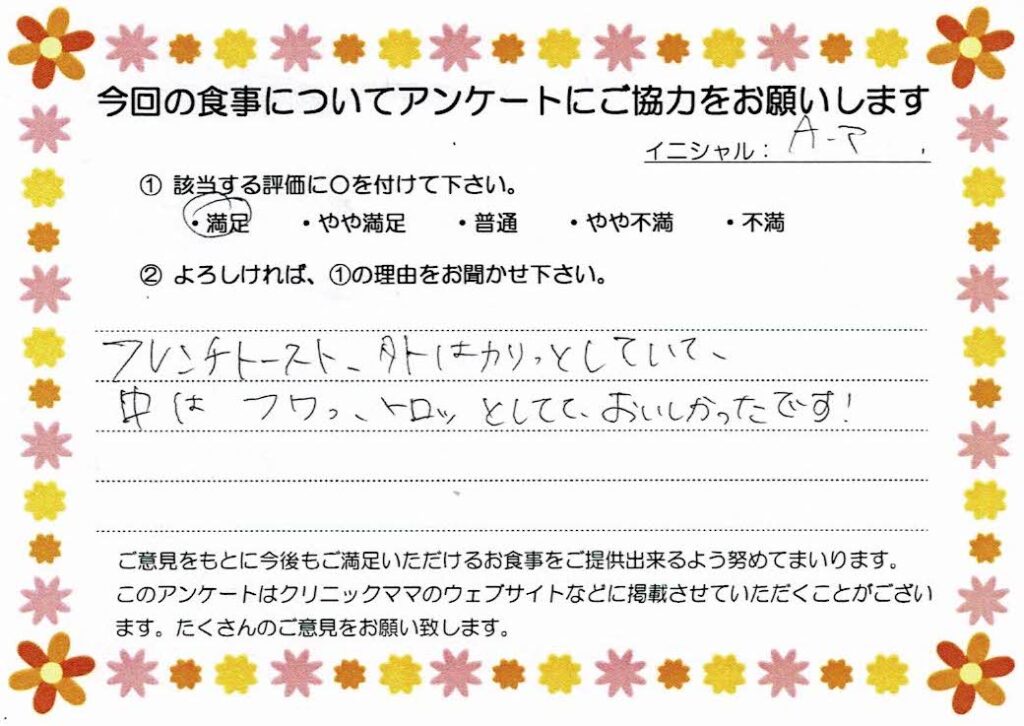 今回の食事についてアンケートにご協力をお願いします
イニシャル： A-マ
① 該当する評価に〇を付けて下さい。
・満足 ・やや満足 ・普通 ・やや不満 ・不満
② よろしければ、①の理由をお聞かせ下さい。
フレンチトースト、外はカリっとしていて、
中は フワっ、トロッ としてて、おいしかったです!
ご意見をもとに今後もご満足いただけるお食事をご提供出来るよう努めてまいります。
このアンケートはクリニックママのウェブサイトなどに掲載させていただくことがござい
ます。たくさんのご意見をお願い致します。